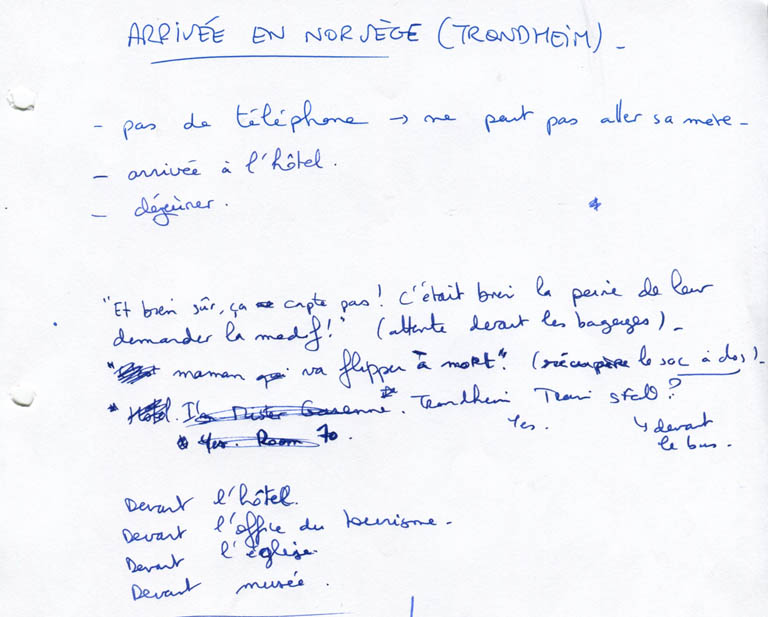 ARRIVÉE EN NORVÈGE (TRONDHEIM) -
- pas de téléphone → ne peut pas aller sa mère -
- arrivée à l'hôtel.
- déjeuner.
"Et bien sûr, ça capte pas! C'était bien la peine de leur
demander la modif!" (attente devant les bagages) -
maman va flipper à mort". (récupère le sac à dos) -
Hotel. I'm Mister Garenne". Trondheim Train stat°?
Yes. Room 70. Yes. ↳ devant
le bus.
Devant l'hôtel.
Devant l'office du tourisme -
Devant l'église.
Devant musée.